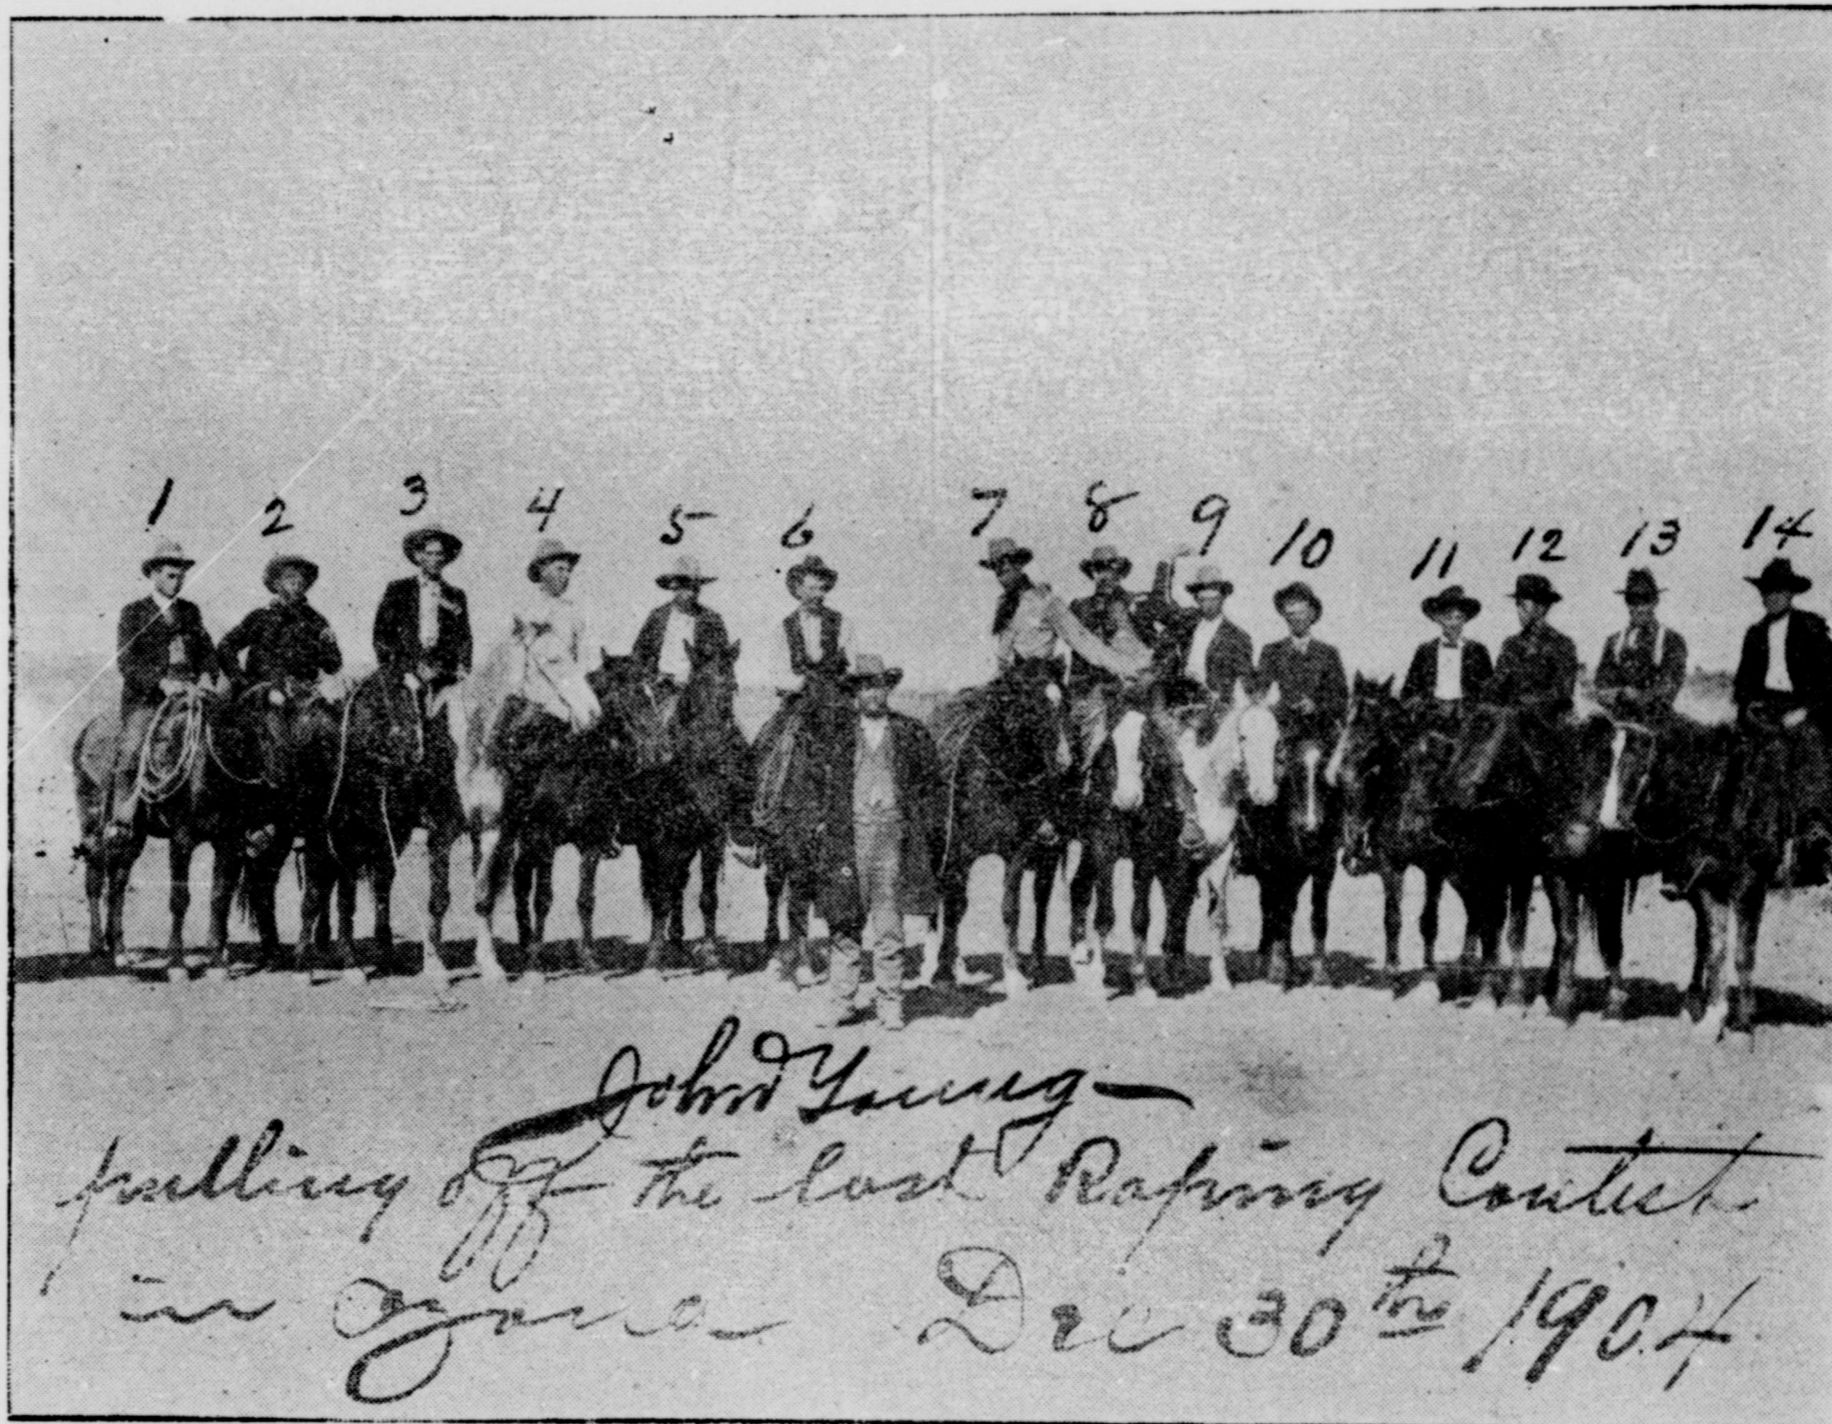 1 2 3 4 5 6 7 8 9 10 11 12 13 14
John Young
pulling off the last Roping Contest
in Ozona Dec 30th 1904